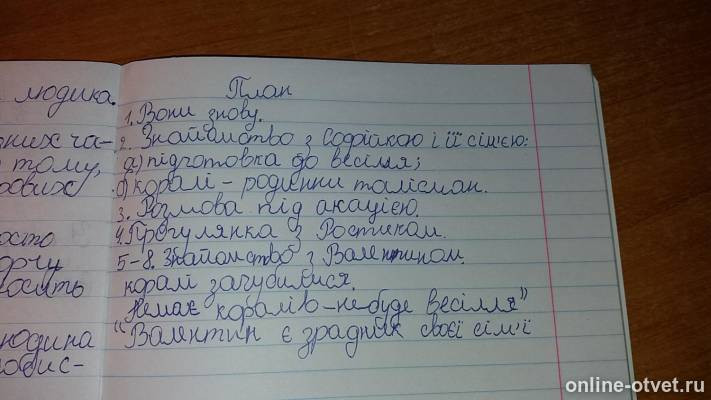 людина.
них ча-
тому,
рових
осто
орчу
осить
людина
обис-
План
1. Вони знову.
2. Знайомство з Софійкою і її сім'єю:
а) підготовка до весілля;
б) коралі - родинний талісман.
3. Розмова під акацією.
4. Прогулянка з Ростиком.
5-8. Знайомство з Валентином.
коралі загубилися.
Немає коралів - не буде весілля"
"Валентин є зрадник своєї сім'ї
online-otvet.ru